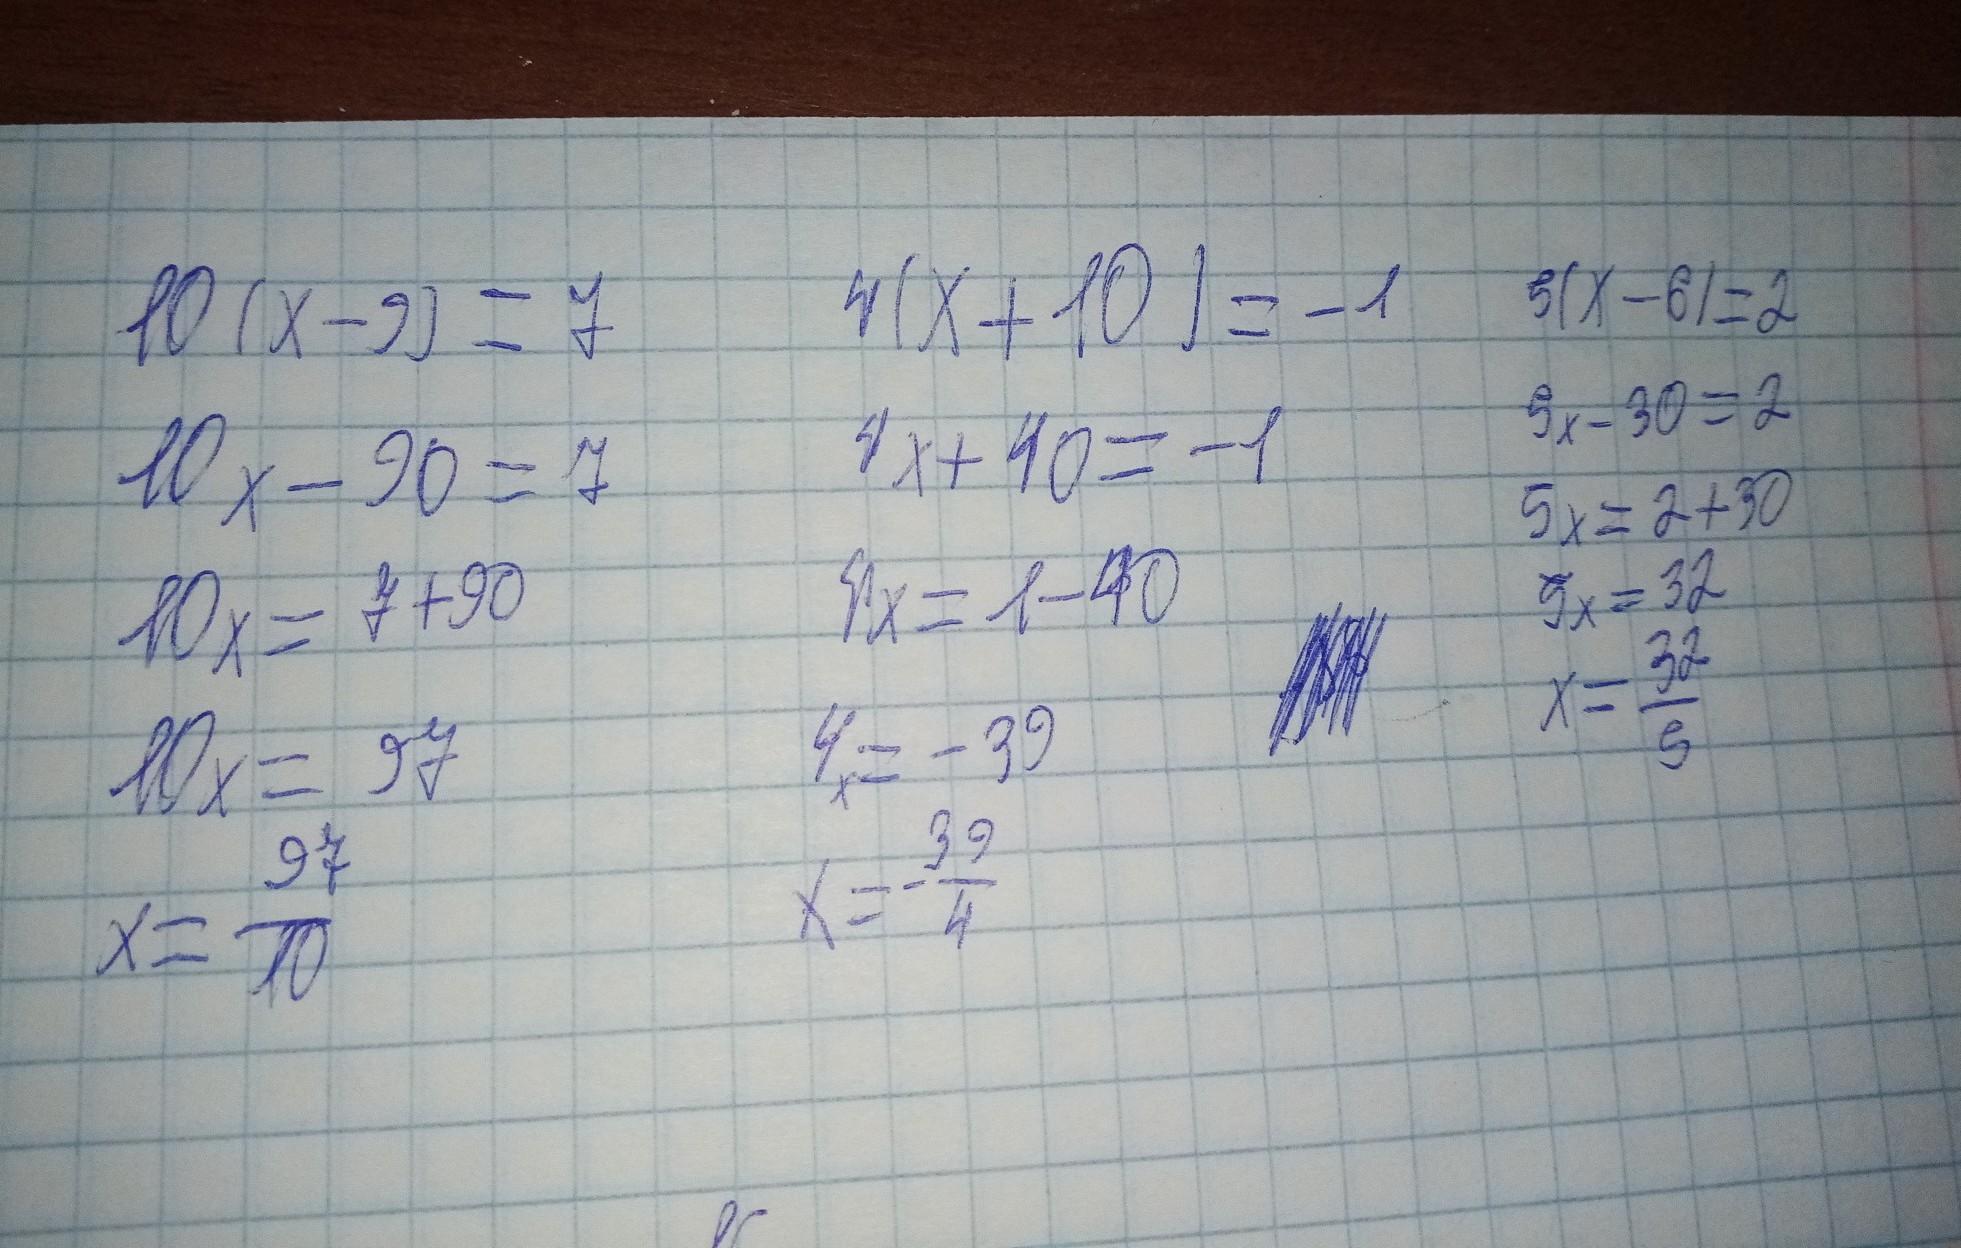 10(x-9)=7
10x-90=7
10x=7+90
10x=97
x=97/10
4(x+10)=-1
4x+40=-1
4x=1-40
4x=-39
x=-39/4
5(x-6)=2
5x-30=2
5x=2+30
5x=32
x=32/5